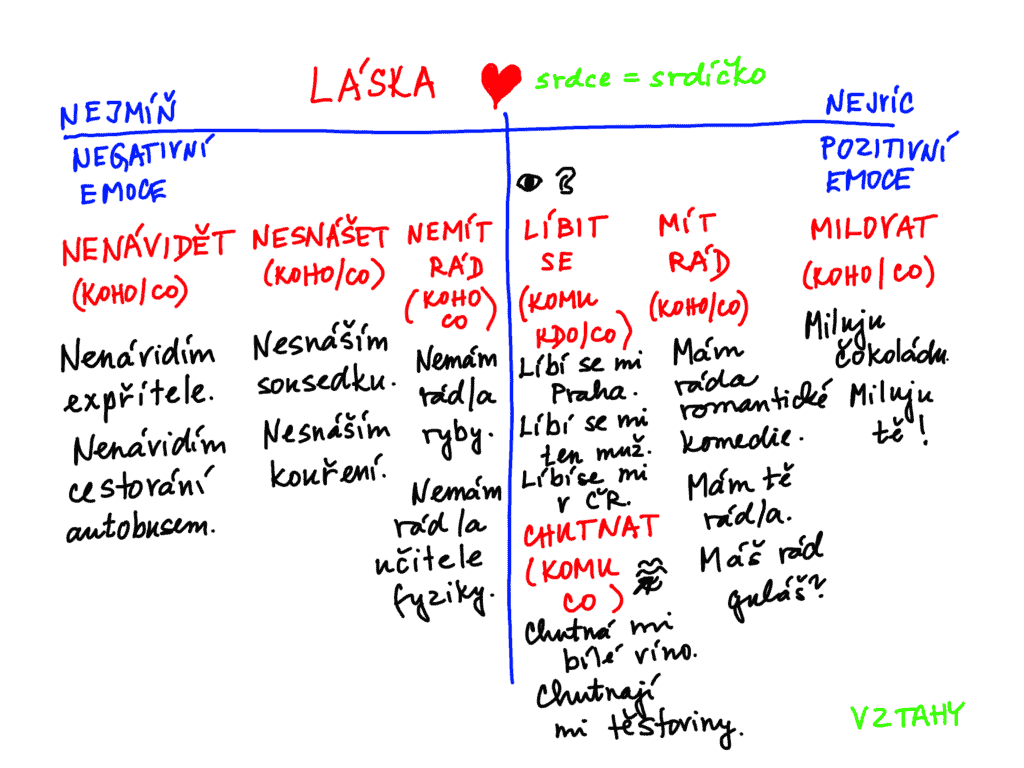 LÁSKA
srdce = srdíčko
NEJMÍŇ
NEJVÍC
NEGATIVNÍ
EMOCE
POZITIVNÍ
EMOCE
NENÁVIDĚT
(KOHO/CO)
Nenávidím
expřítele.
Nenávidím
cestování
autobusem.
NESNÁŠET
(KOHO/CO)
Nesnáším
sousedku.
Nesnáším
kouření.
NEMÍT
RÁD
(KOHO
CO)
Nemám
rád/a
ryby.
Nemám
rád/a
učitele
fyziky.
LÍBIT
SE
(KOMU
KDO/CO)
Líbí se mi
Praha.
Líbí se mi
ten muž.
Líbí se mi
v ČR.
CHUTNAT
(KOMU
CO)
Chutná mi
bílé víno.
Chutnají
mi těstoviny.
MÍT
RÁD
(KOHO/CO)
Mám
ráda
romantické
komedie.
Mám tě
rád/a.
Máš rád
guláš?
MILOVAT
(KOHO/CO)
Miluju
čokoládu.
Miluju
tě!
VZTAHY